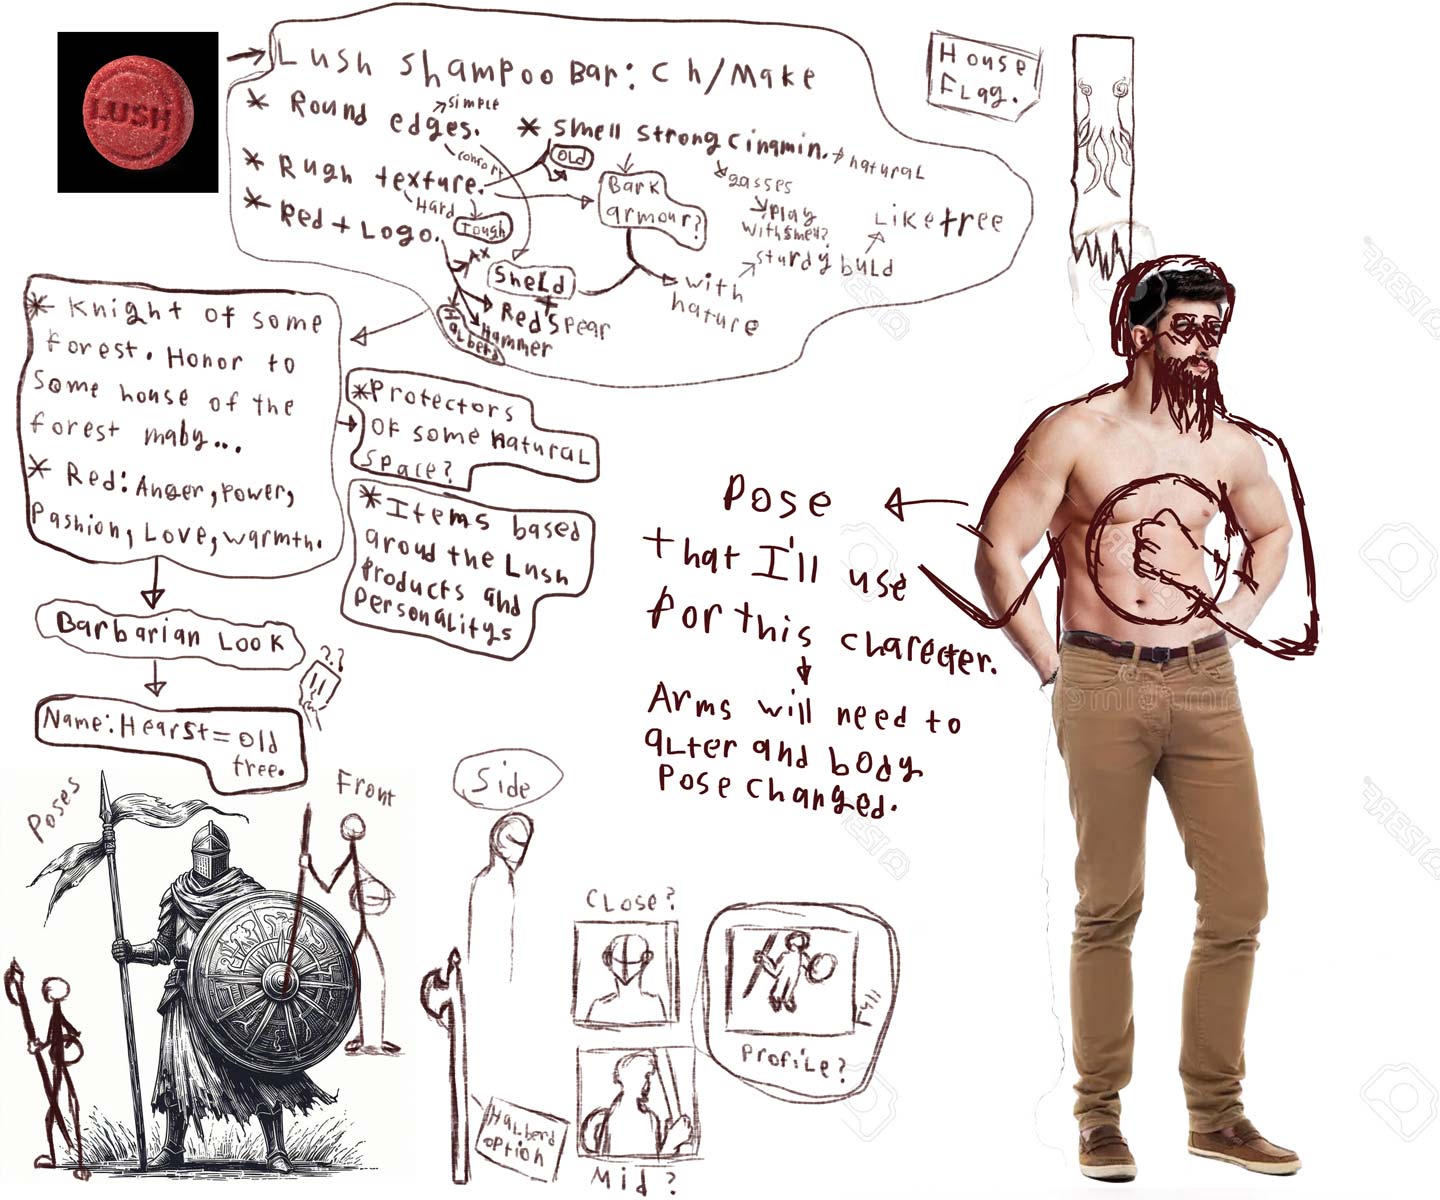 LUSH
Lush shampoo Bar: Ch/Make
* Round edges.
simple
comfort
* Smell strong cinqmin.
natural
* Rugh texture.
Hard
Tough
OLD
* Red + Logo.
Bark
armour?
gasses
Play
with smell?
sturdy build
Like tree
with
nature
AX
Sheld
+
Red Spear
Hammer
Halberd
House
Flag.
* Knight of some
forest. Honor to
some house of the
forest maby...
* Red: Anger, Power,
Pashion, Love, warmth.
*Protectors
of some natural
space?
*Items based
aroud the Lush
products and
personalitys
Barbarian Look
??
Name: Hearst = old
tree.
Pose
that I'll use
for this charecter.
Arms will need to
alter and body
pose changed.
Poses
Front
Side
Close?
Mid?
Full
Profile?
Halberd
option
123RF
123RF
123RF